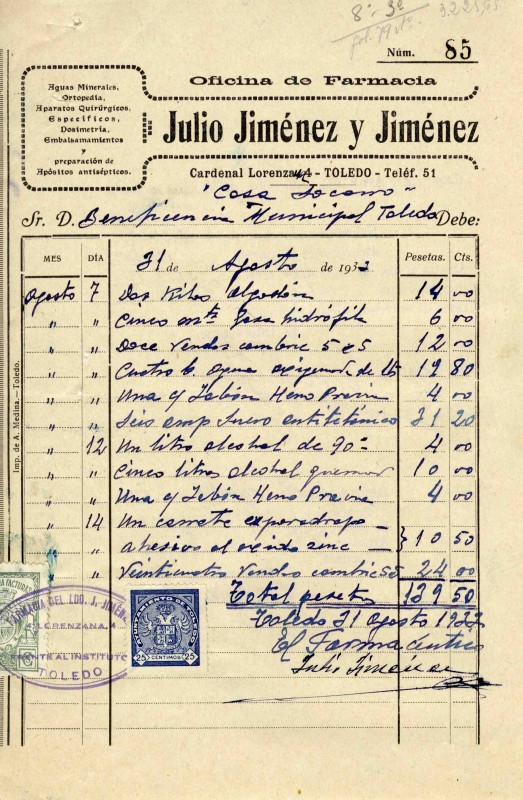 8º 3º
322565
Núm. 85
Aguas Minerales,
Ortopedia,
Aparatos Quirúrgicos,
Específicos,
Dosimetría,
Embalsamamientos
y
preparación de
Apósitos antisépticos.
Oficina de Farmacia
Julio Jiménez y Jiménez
Cardenal Lorenzana 4 - TOLEDO - Teléf. 51
"Casa Socorro"
Sr. D. Beneficencia Municipal Toledo Debe:
MES DÍA 31 de Agosto de 193 Pesetas. Cts.
Agosto 7 Dos Kilos algodón 14 00
" " Cinco mts Gasa hidrófila 6 00
" " Doce vendas cambric 5 x 5 12 00
" " Cuatro b. agua oxigenada de 19 80
" " Una c/ Jabón Heno Pravia 4 00
" " Seis amp suero antitetánico 31 20
" 12 Un litro alcohol de 90º 4 00
" " Cinco litros alcohol quemar 10 00
" " Una c/ Jabón Heno Pravia 4 00
" 14 Un carrete esparadrapo
" " adhesivo al óxido zinc } 10 50
" " Veinticuatro vendas cambric 5 5 24 00
Total pesetas 139 50
Toledo 31 agosto 193
El Farmacéutico
Julio Jiménez
Imp. de A. Medina.—Toledo.
FARMACIA DEL LDO. J. JIMÉNEZ
LORENZANA, 4
FRENTE AL INSTITUTO
TOLEDO
AYUNTAMIENTO DE TOLEDO
25 CENTIMOS 25